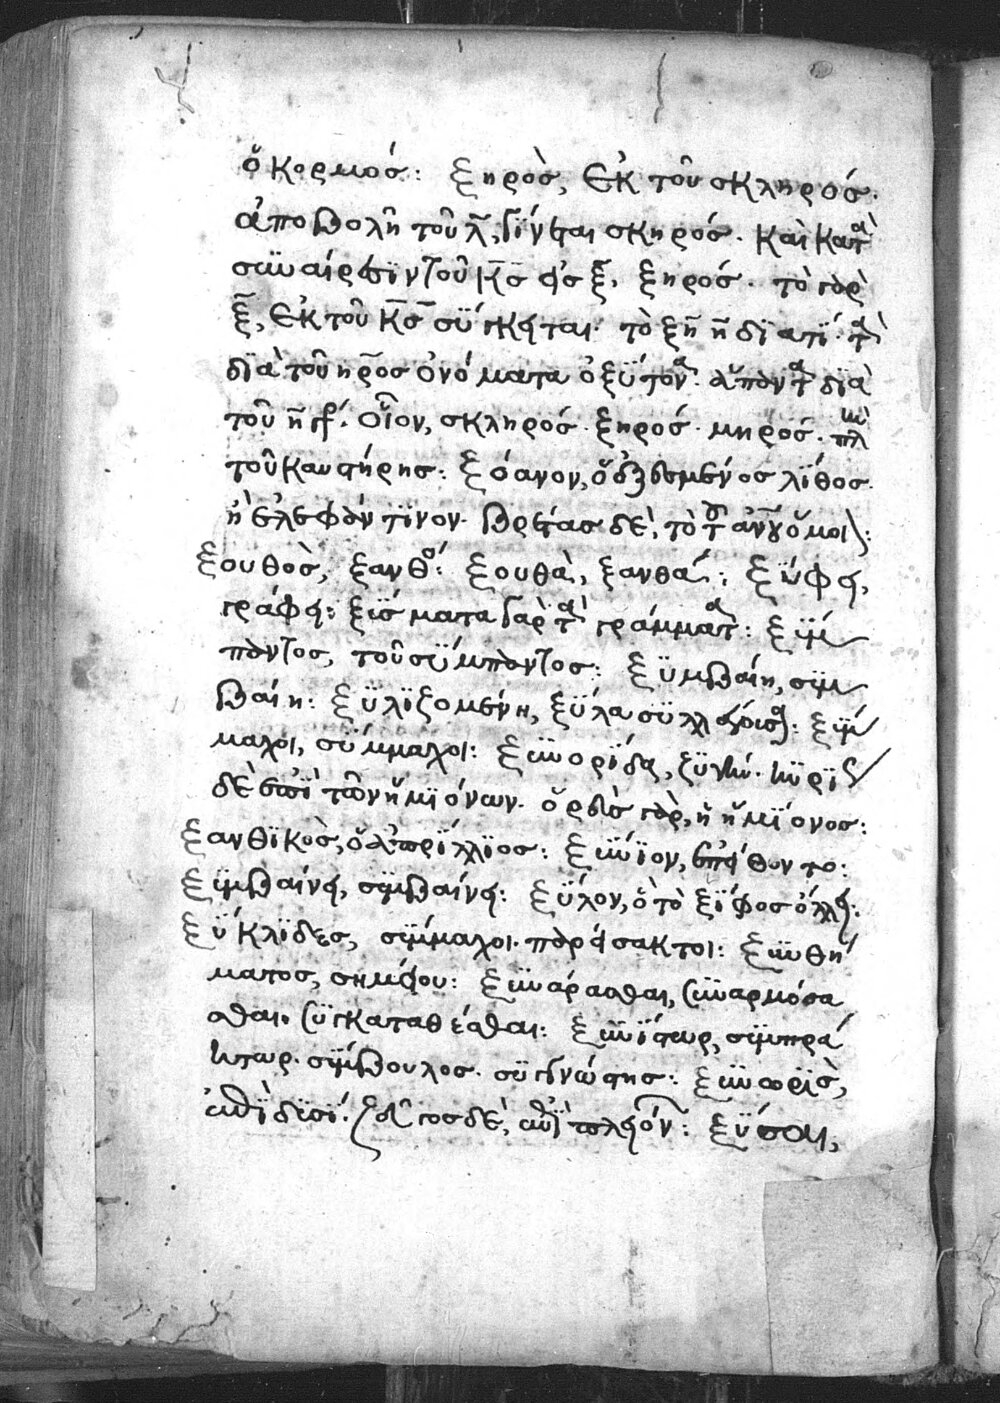 ὁ κορμός: ξηρὸς, ἐκ τοῦ σκληρός·
ἀποβολῆ τοῦ λ̅, γίνεται σκηρός· καὶ κατὰ
συναίρεσιν τοῦ κ̅ς̅ εἰς ξ̅, ξηρός· τὸ γὰρ
ξ̅, ἐκ τοῦ κ̅ς̅ σύγκειται· τὸ ξη η διατί· τὰ
διὰ τοῦ ηρος ὀνόματα ὀξύτονα ἅπαντα διὰ
τοῦ η γρ· οἷον, σκληρός· ξηρός· μηρός· πλὴν
τοῦ καυστήρης: ξόανον, ὁ ἐξεσμένος λίθος·
ἢ ἐλεφάντινον· βρέτας δὲ, τὸ
ξουθὸς, ξανθός: ξουθὰ, ξανθά: ξύφει,
γράφει: ξύσματα γὰρ τὰ γράμματα: ξύμ
παντος, τοῦ σύμπαντος: ξυμβαίη, συμ
βαίη: ξυλιζομένη, ξύλα συλλέγουσα: ξύμ
μαχοι, σύμμαχοι: ξυνορίδα, ζυγήν· κυρίως
δὲ ἐπὶ τῶν ἡμιόνων· ὀρεὺς γὰρ, ἡ ἡμίονος:
ξανθικὸς, ὁ ἀπρίλλιος: ξυνίον, ἐπείθοντο:
ξυμβαίνει, συμβαίνει: ξύλον, ὅ τὸ ξίφος ὀλλύει:
ξύκλιδες, σύμμαχοι· παρείσακτοι: ξυνθή
ματος, σημείου: ξυναράσθαι, συναρμόσα
σθαι· συγκαταθέσθαι: ξυνίστωρ, συμπρά
κτωρ· σύμβουλος· συγγνώστης: ξυνωρὶς,
ἐπὶ δυσί· ζεῦγος δὲ, ἐπὶ πλεῖον: ξύσαι,